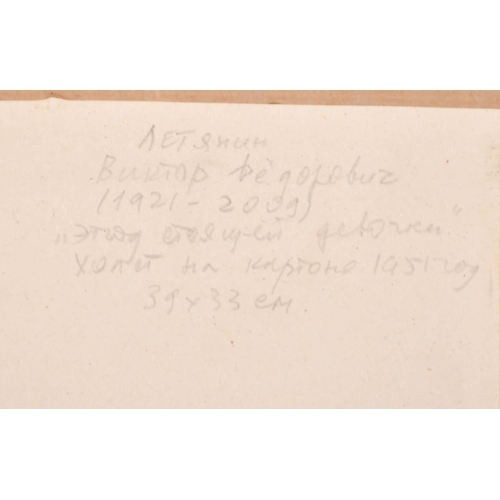 Летянин
Виктор Фёдорович
(1921 - 2009)
„Этюд стоящей девочки"
Холст на картоне 1951 год
39 x 33 см